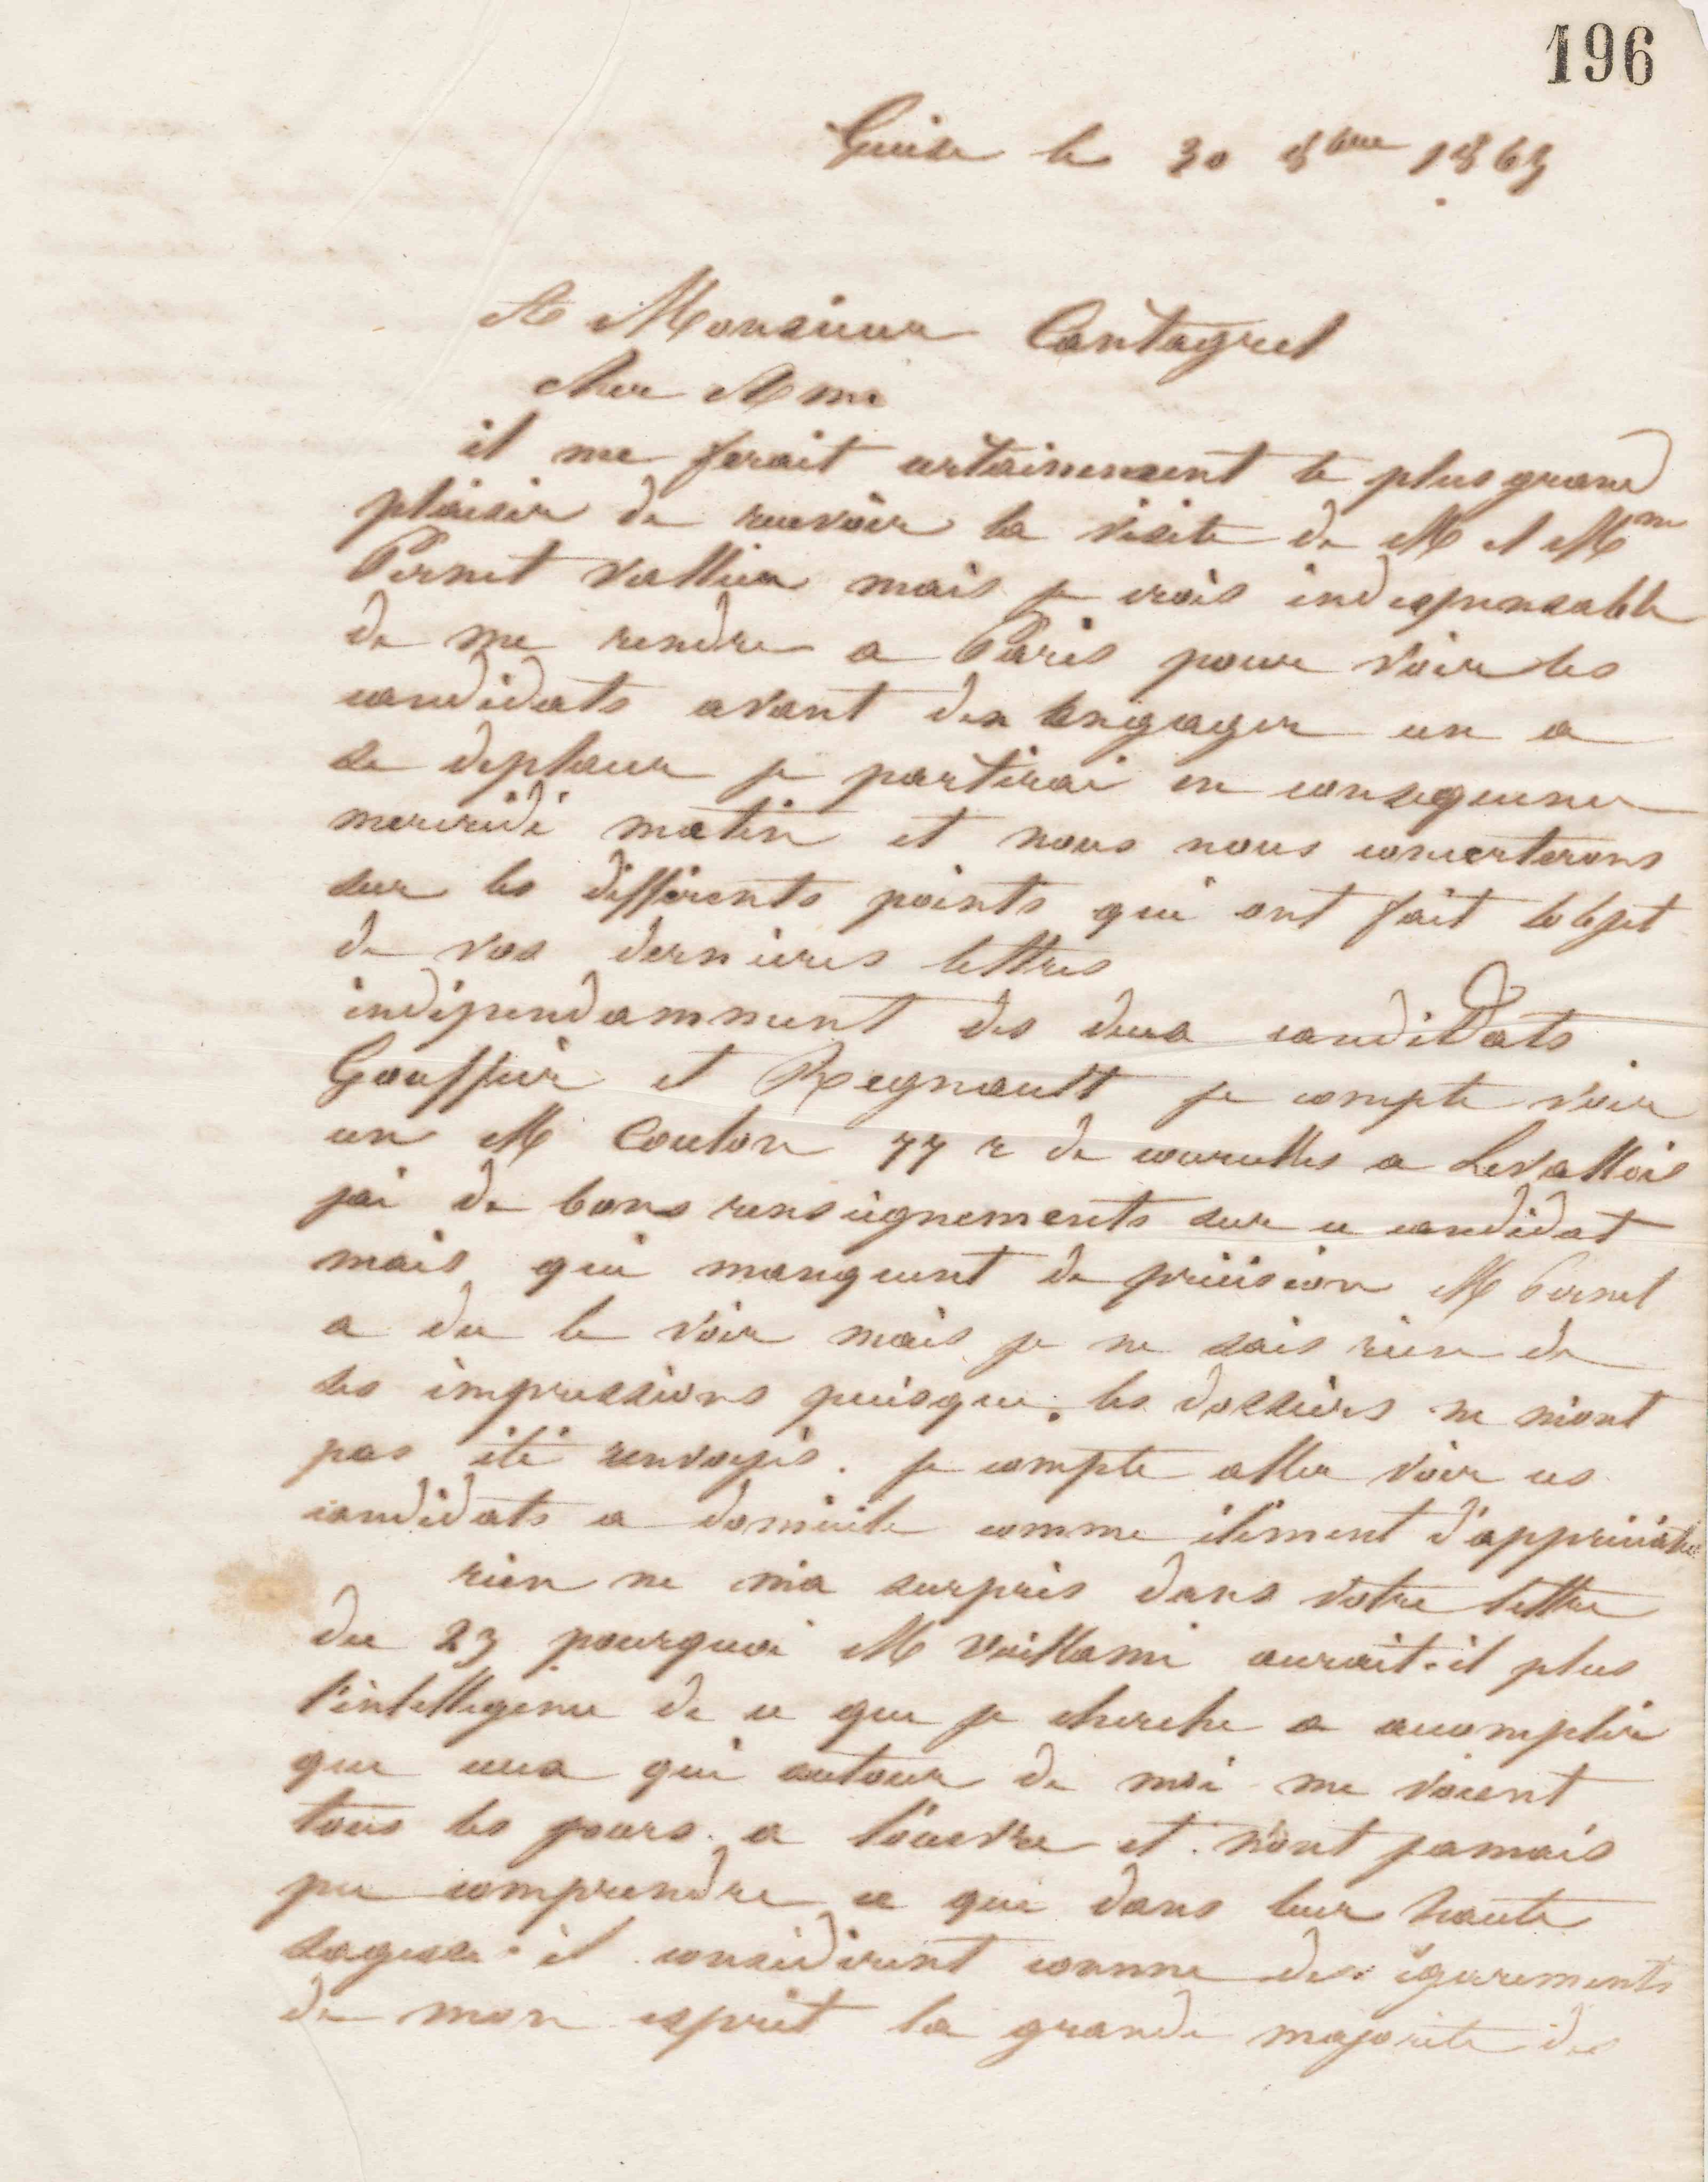 196
Guise le 30 8bre 1865
A Monsieur Cantagrel
cher Ami
il me ferait certainement le plus grand
plaisir de recevoir la visite de M et Mme
Pernet Vallier mais je crois indispensable
de me rendre a Paris pour voir les
candidats avant den engager un a
se deplacer je partirai en consequence
mercredi matin et nous nous concerterons
sur les différents points qui ont fait lobjet
de vos dernières lettres
indépendamment des deux candidats
Gouffier et Regnault je compte voir
un M Coulon 77 r de courcelles a Levallois
jai de bons renseignements sur ce candidat
mais qui manquent de précision M Pernet
a du le voir mais je ne sais rien de
ses impressions puisque les dossiers ne m'ont
pas été renvoyés. je compte aller voir ces
candidats a domicile comme élément d'appréciation
rien ne m'a surpris dans votre lettre
du 23 pourquoi M aurait-il plus
l'intelligence de ce que je cherche a accomplir
que ceux qui autour de moi me voient
tous les jours a l'oeuvre et n'ont jamais
pu comprendre ce que dans leur haute
sagesse il considèrent comme des égarements
de mon esprit la grande majorité des